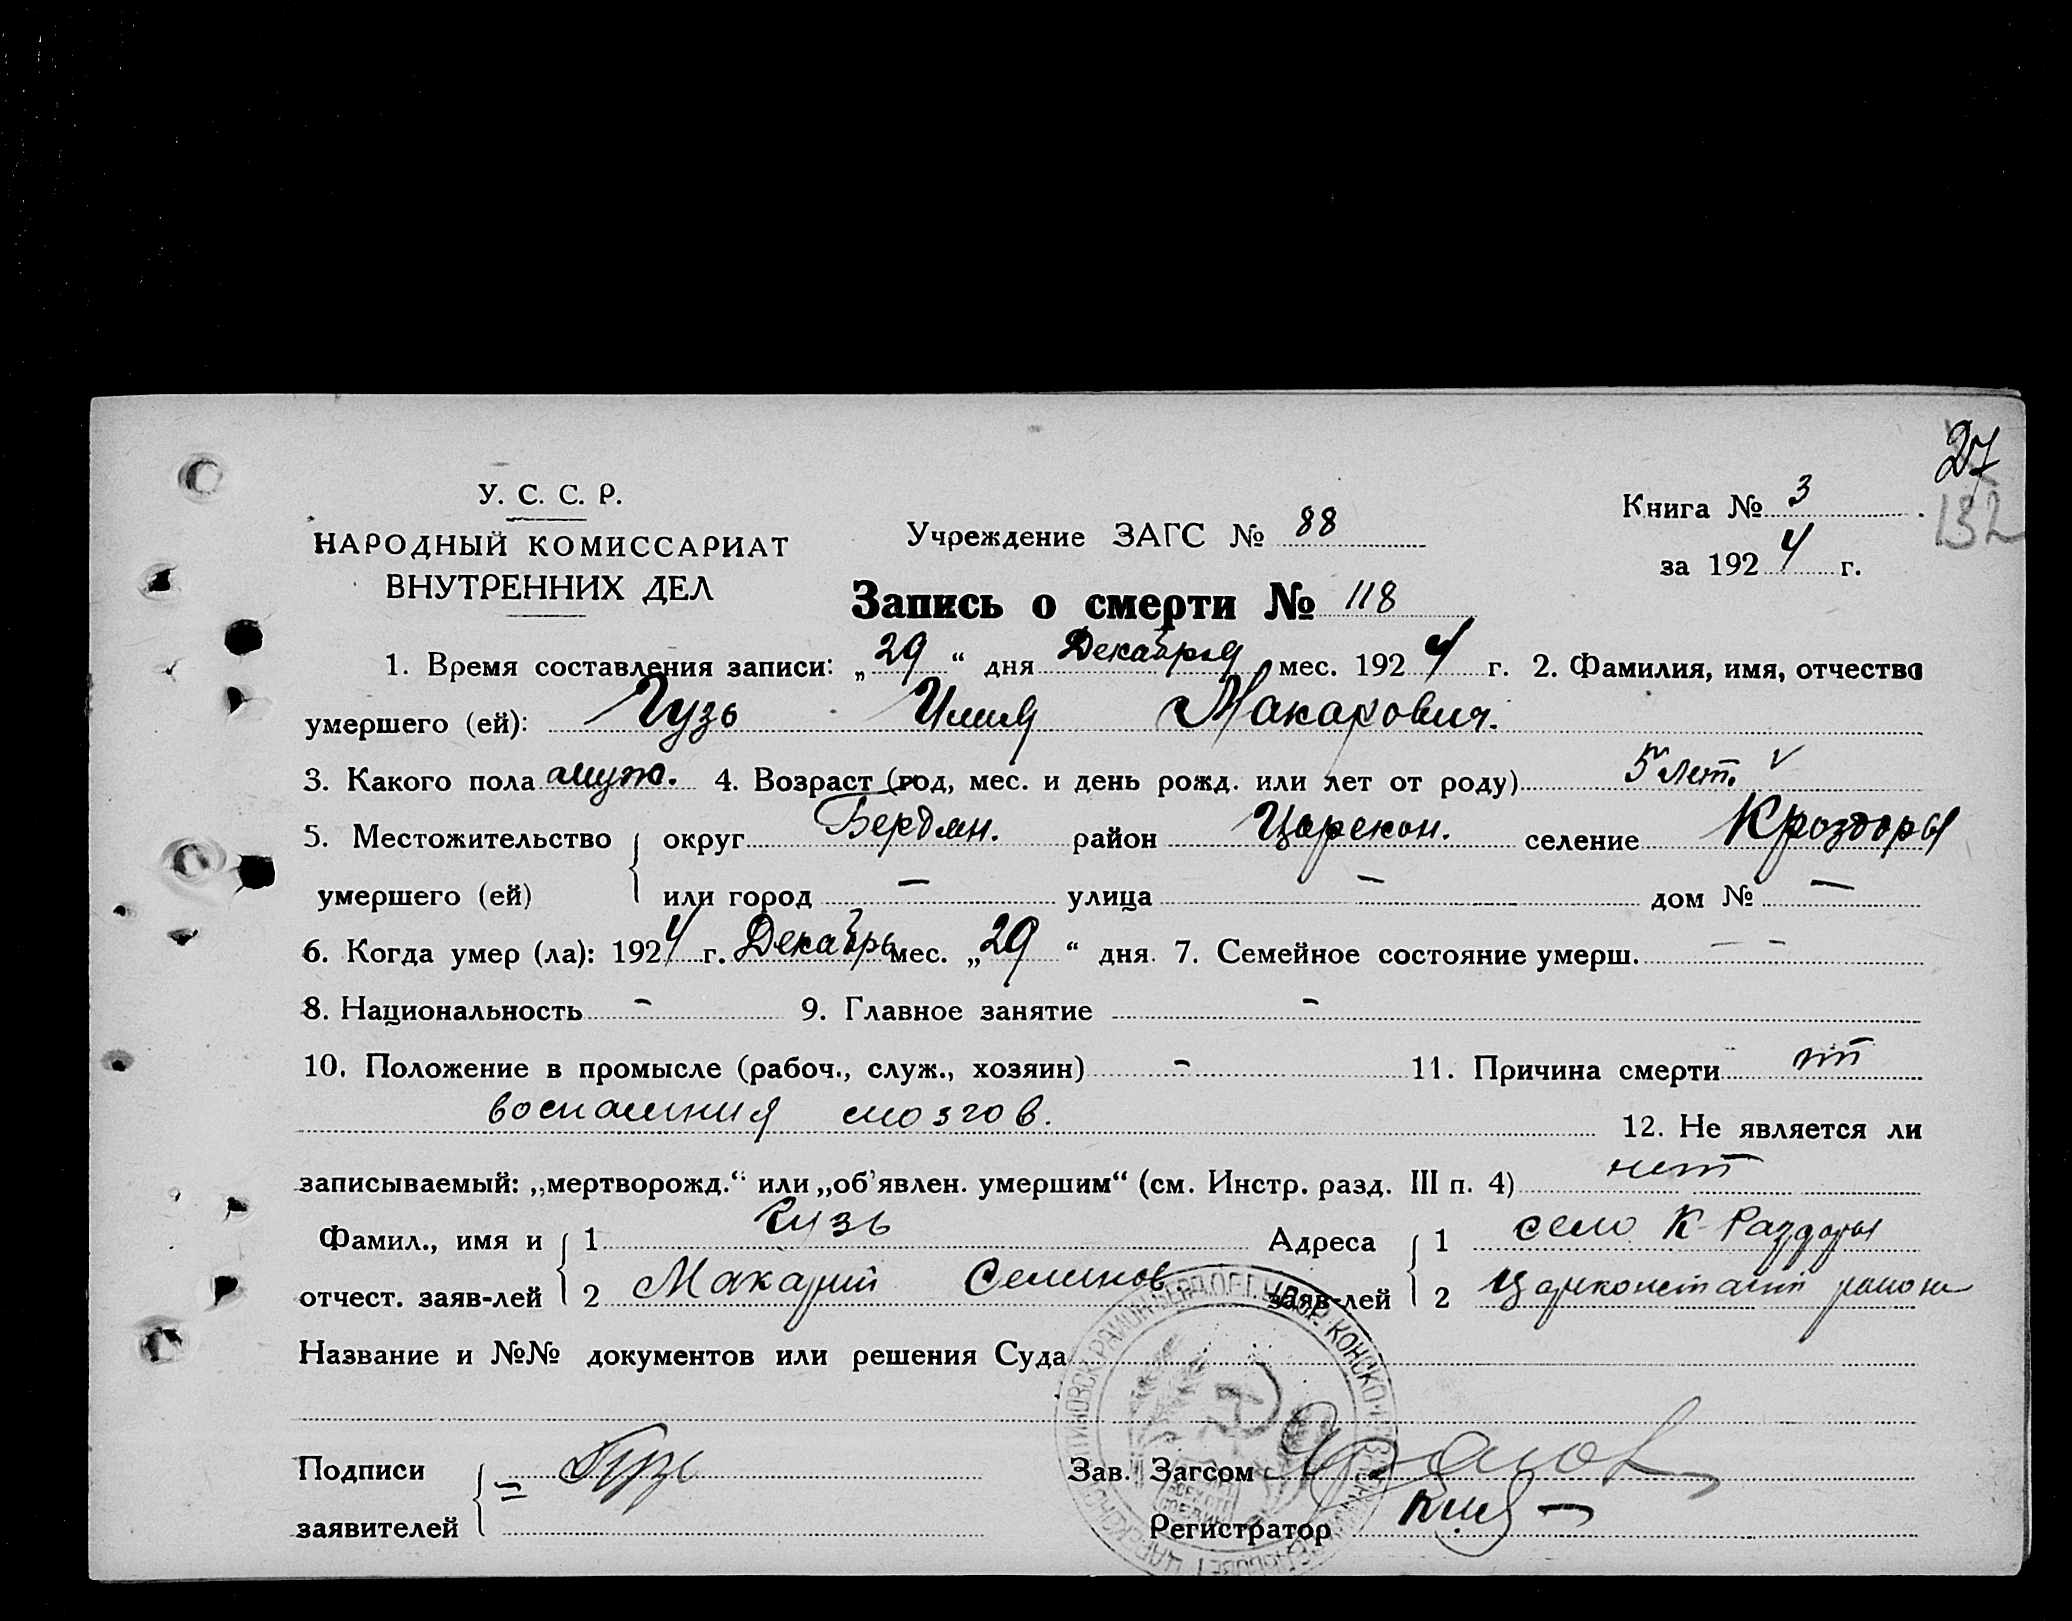 27
132
У. С. С. Р.
НАРОДНЫЙ КОМИССАРИАТ
ВНУТРЕННИХ ДЕЛ
Учреждение ЗАГС № 88
Книга № 3
за 1924 г.
Запись о смерти № 118
1. Время составления записи: „29“ дня Декабря мес. 1924 г. 2. Фамилия, имя, отчество
умершего (ей): Гузь Илия Макарович.
3. Какого пола муж. 4. Возраст (год, мес. и день рожд. или лет от роду) 5 лет. v
5. Местожительство округ Бердян. район Царекон. селение Кроздоры
умершего (ей) или город — улица — дом № —
6. Когда умер (ла): 1924 г. Декабрь мес. „29“ дня. 7. Семейное состояние умерш. — -
8. Национальность - 9. Главное занятие -
10. Положение в промысле (рабоч., служ., хозяин) - 11. Причина смерти от
воспаления мозгов. 12. Не является ли
записываемый: „мертворожд.“ или „об'явлен. умершим“ (см. Инстр. разд. III п. 4) нет
Фамил., имя и 1 Гузь Адреса 1 село К-Раздоры
отчест. заяв-лей 2 Макарий Семенов заяв-лей 2 Царконстант района
Название и №№ документов или решения Суда
Подписи = Гузь Зав. Загсом
заявителей Регистратор